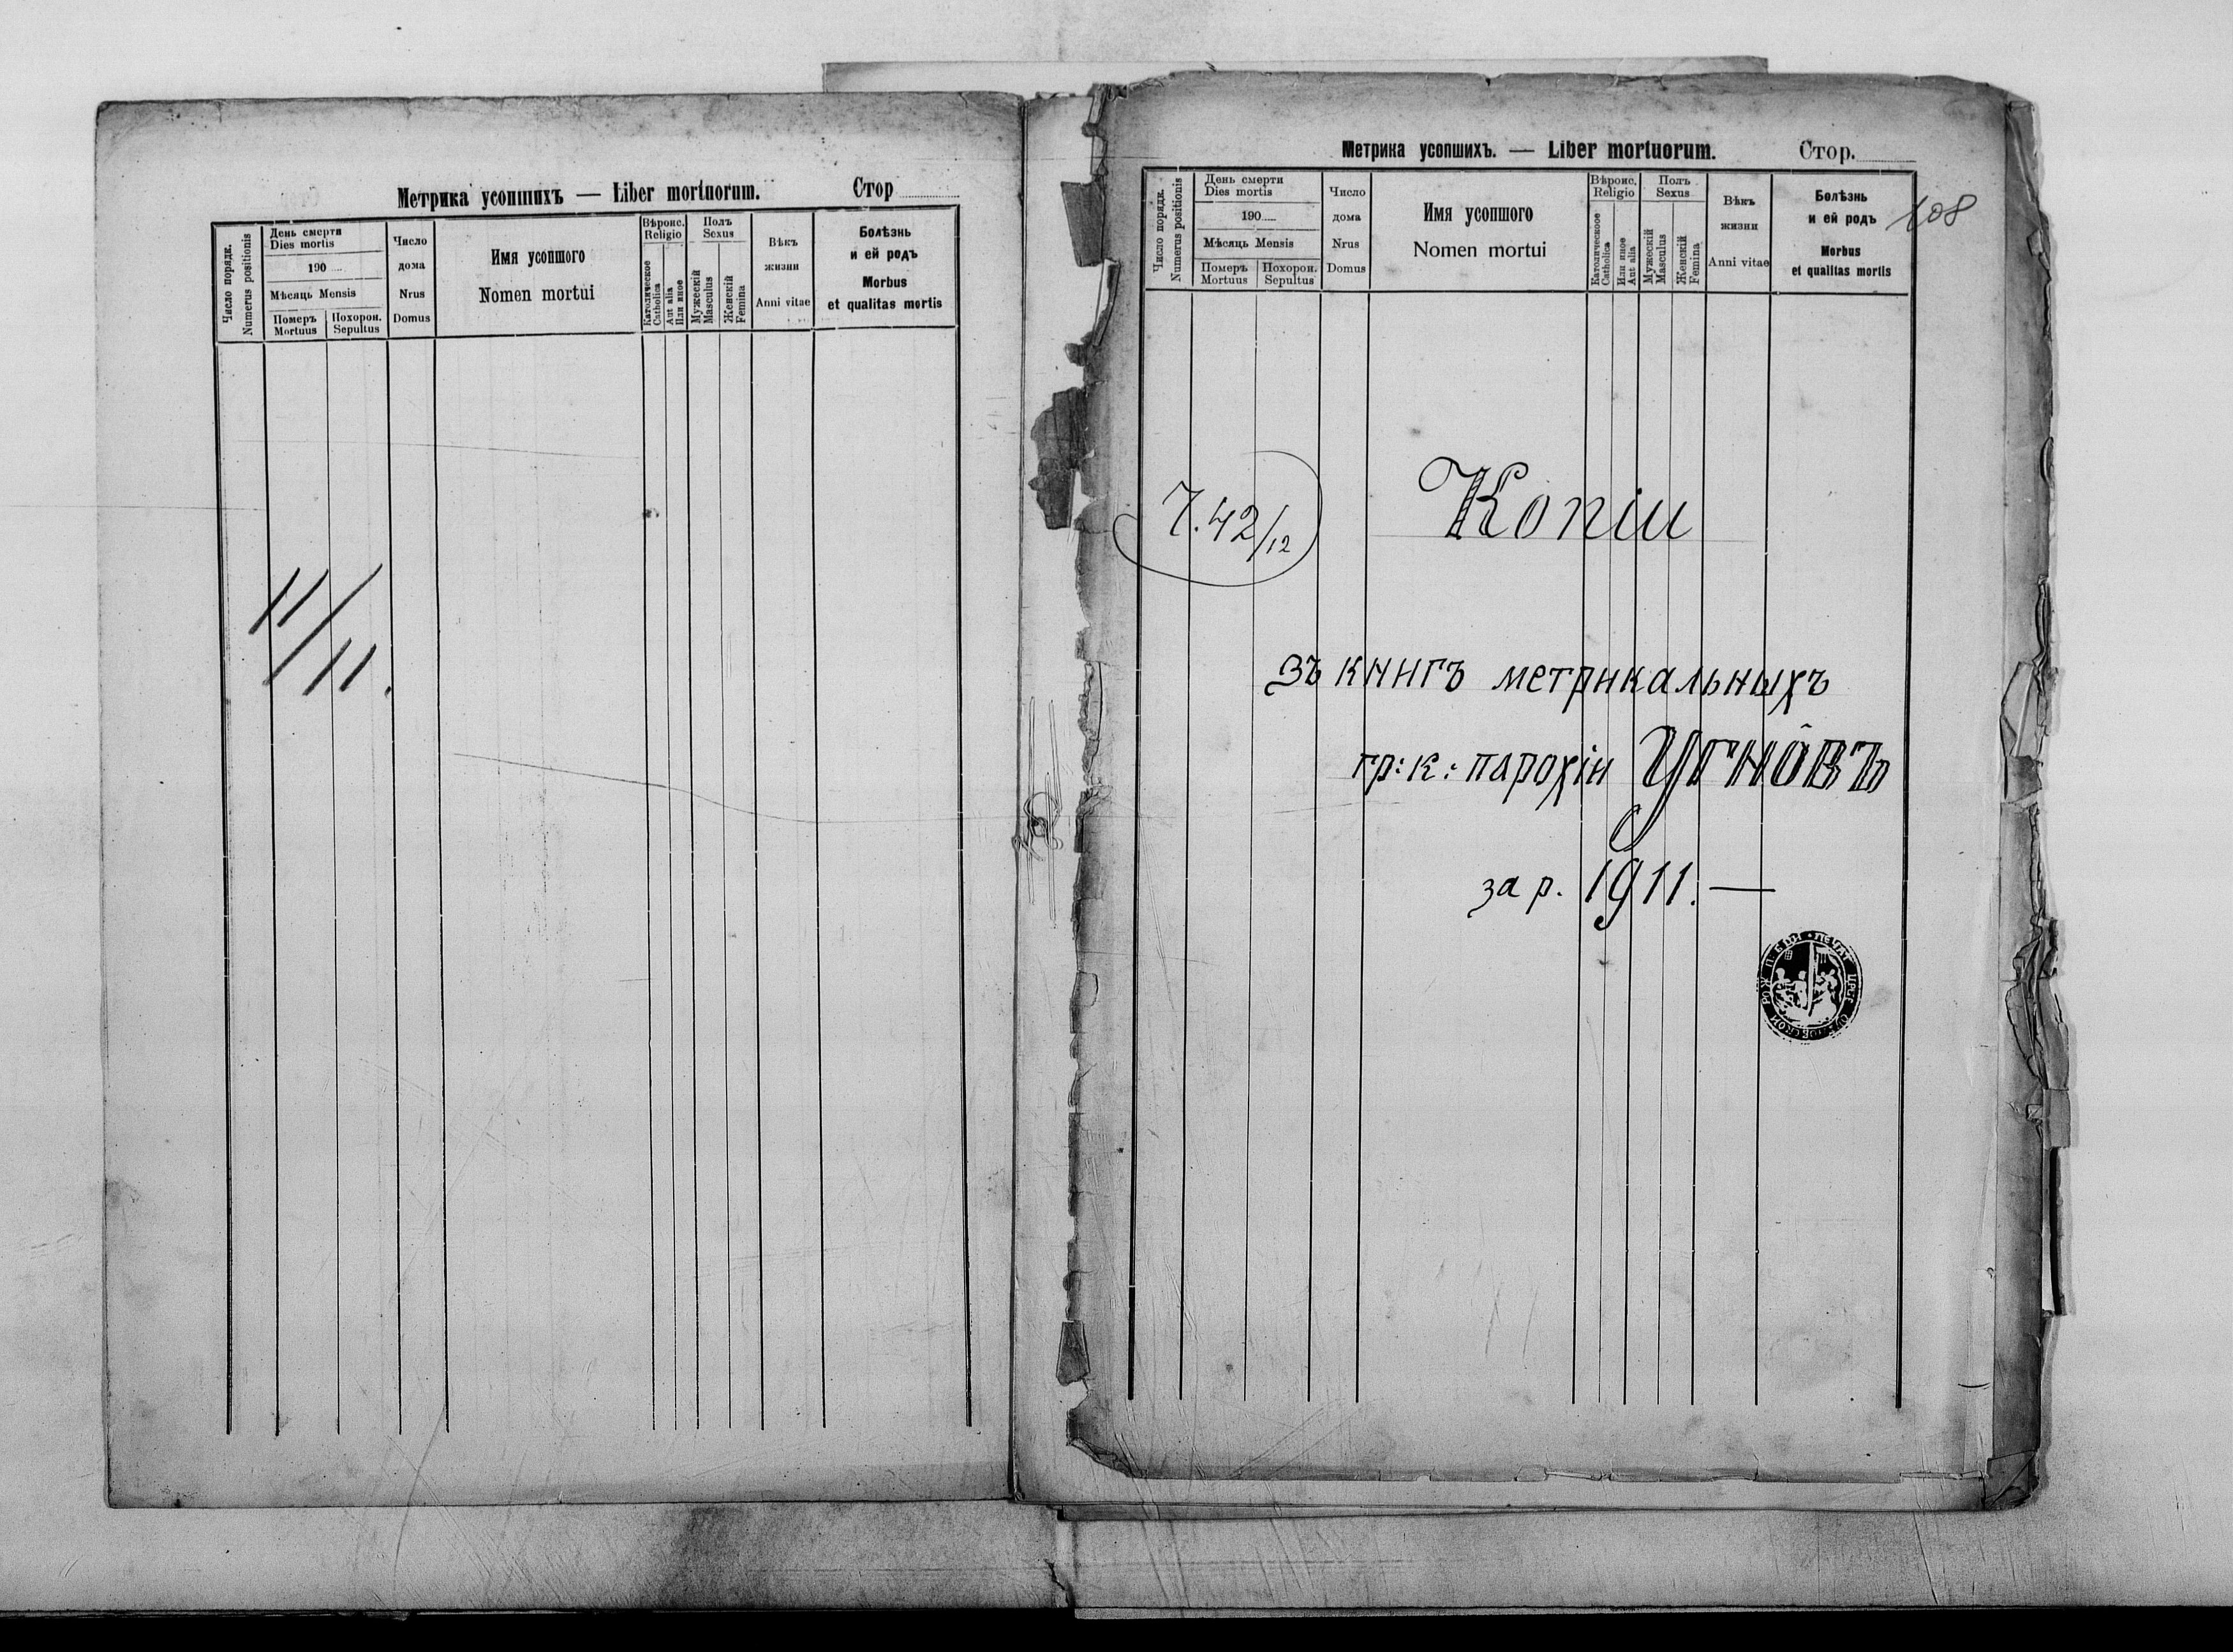 Метрика усопшихъ — Liber mortuorum. Стор
Число порядк.
Numerus positionis
День смерти
Dies mortis
190
Мѣсяць Mensis
Померъ
Mortuus
Похорон.
Sepultus
Число
дома
Nrus
Domus
Имя усопшого
Nomen mortui
Вѣроис.
Religio
Католическое
Catholica
Aut alia
Или иное
Полъ
Sexus
Мужескій
Masculus
Женскій
Femina
Вѣкъ
жизни
Anni vitae
Болѣзнь
и ей родъ
Morbus
et qualitas mortis
11/11.
Метрика усопшихъ. — Liber mortuorum. Стор.
108
Число порядк.
Numerus positionis
День смерти
Dies mortis
190
Мѣсяць Mensis
Померъ
Mortuus
Похорон.
Sepultus
Число
дома
Nrus
Domus
Имя усопшого
Nomen mortui
Вѣроис.
Religio
Католическое
Catholica
Или иное
Aut alia
Полъ
Sexus
Мужескій
Masculus
Женскій
Femina
Вѣкъ
жизни
Anni vitae
Болѣзнь
и ей родъ
Morbus
et qualitas mortis
7.42/12
Копіи
зъ книгъ метрикальныхъ
гр: к: парохіи Угнôвъ
за р. 1911. —